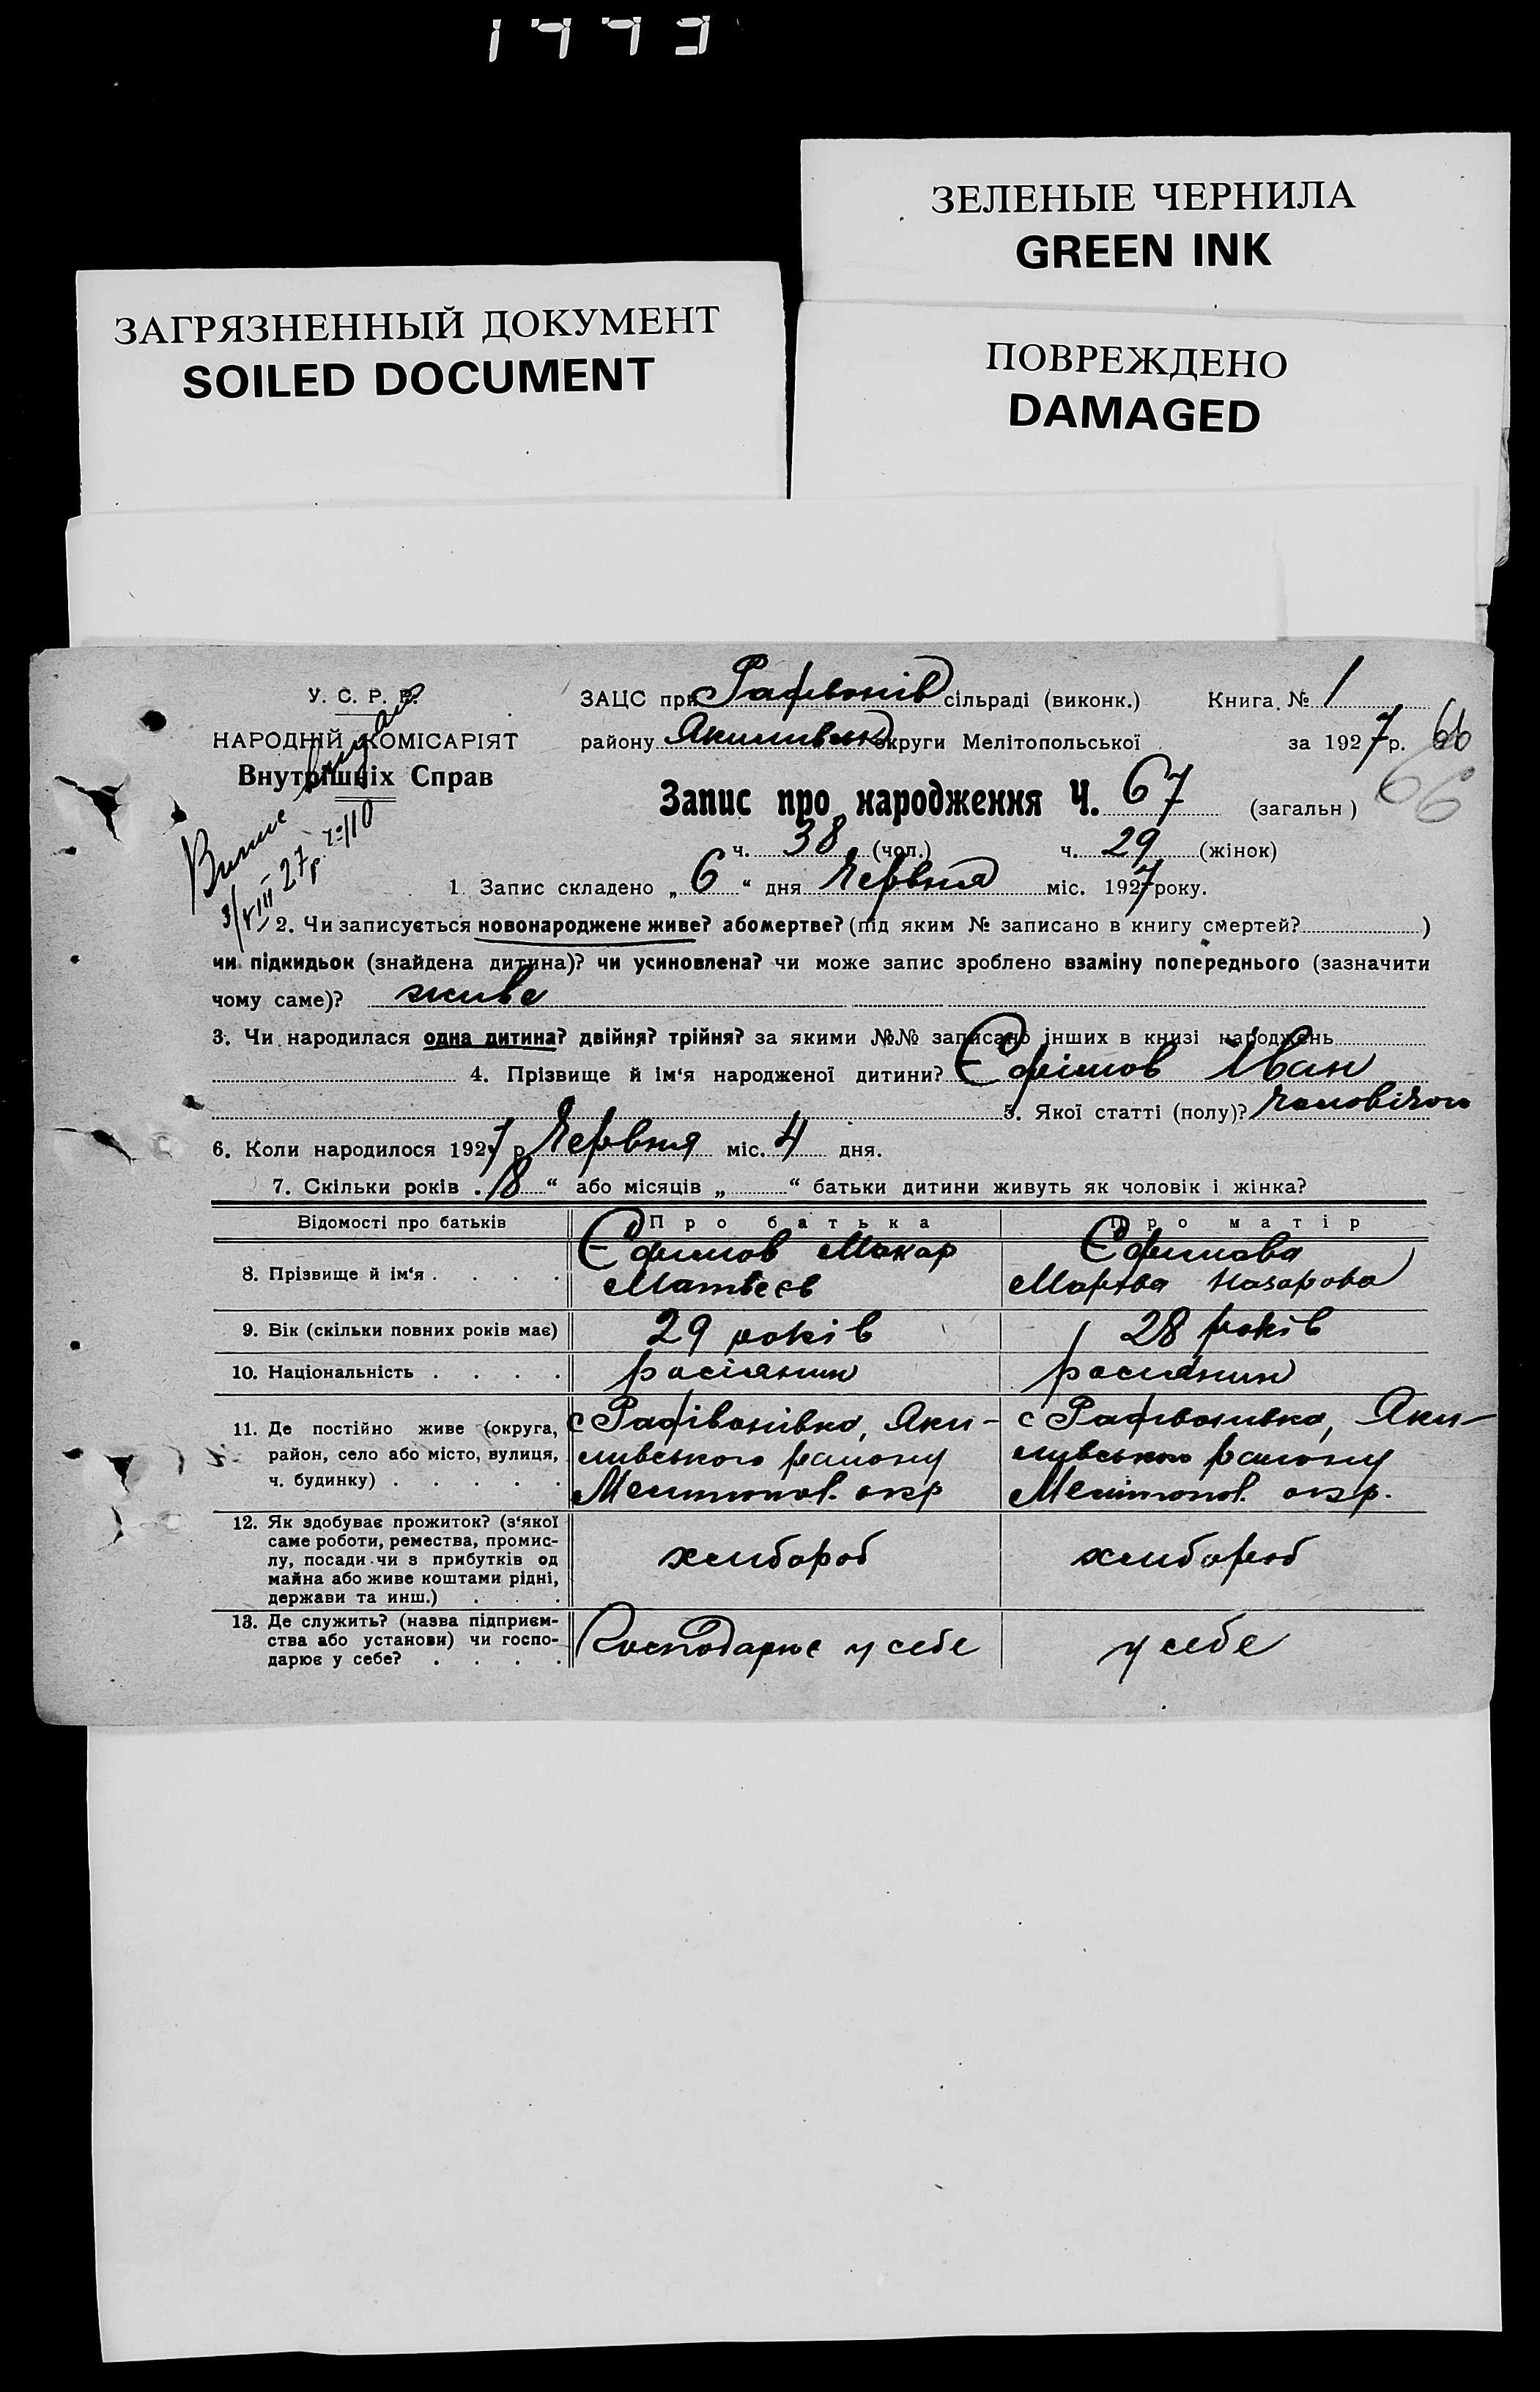 ЗЕЛЕНЫЕ ЧЕРНИЛА
GREEN INK
ЗАГРЯЗНЕННЫЙ ДОКУМЕНТ
SOILED DOCUMENT
ПОВРЕЖДЕНО
DAMAGED
У. С. Р. Р.
НАРОДНІЙ КОМІСАРІЯТ
Внутрішніх Справ
3/VIII 27 р.
ЗАЦС при Рафвонів сільраді (виконк.) Книга № 1
району Якимивськ округи Мелітопольської за 1927 р. 66
66
Запис про народження Ч. 67 (загальн)
ч. 38 (чол.) ч. 29 (жінок)
1. Запис складено „ 6 “ дня Червня міс. 1927 року.
2. Чи записується новонароджене живе? або мертве? (під яким № записано в книгу смертей? )
чи підкидьок (знайдена дитина)? чи усиновлена? чи може запис зроблено взаміну попереднього (зазначити
чому саме)? живе
3. Чи народилася одна дитина? двійня? трійня? за якими №№ записано інших в книзі народжень
4. Прізвище й ім‘я народженої дитини? Єфімов Іван
5. Якої статті (полу)? чоловічої
6. Коли народилося 1927 р Червня міс. 4 дня.
7. Скільки років „ 8 “ або місяців „ “ батьки дитини живуть як чоловік і жінка?
Відомості про батьків Про батька Про матір
8. Прізвище й ім‘я . . . . Єфимов Макар Єфимова
Матвеєв Марфва Назарова
9. Вік (скільки повних років має) 29 років 28 років
10. Національність . . . . росіянин росиянин
11. Де постійно живе (округа, с Рафівонівка, Яки- с Рафивонивка, Яки-
район, село або місто, вулиця, мивського району мивського району
ч. будинку) . . . . . Мелитопол. окр Мелітопол. окр.
12. Як здобуває прожиток? (з‘якої
саме роботи, ремества, промис-
лу, посади чи з прибутків од хлибороб хлибороб
майна або живе коштами рідні,
держави та инш.) . . .
13. Де служить? (назва підприєм-
ства або установи) чи госпо- Господарює у себе у себе
дарює у себе? . . . .